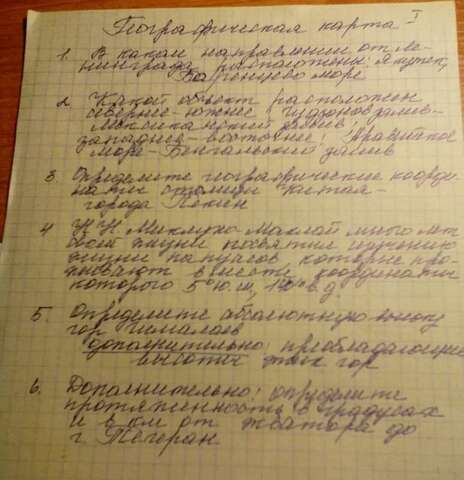 Географическая карта I
1. В каком направлении от Ле-
нинграда расположены: Якутск,
Баренцево море
2. Какой объект расположен
севернее-южнее: Гудзонов залив-
Мексиканский залив;
западнее-восточнее: Аравийское
море-Бенгальский залив
3. Определите географические коорди-
наты столицы Китая-
города Пекин
4. Н.Н. Миклухо-Маклай много лет
своей жизни посвятил изучению
жизни папуасов, которые про-
живают в месте, координаты
которого 5°ю.ш, 140°в.д.
5. Определите абсолютную высоту
гор Гималаев
дополнительно: преобладающие
высоты этих гор
6. Дополнительно: определите
протяженность в градусах
и в км от экватора до
г. Тегеран